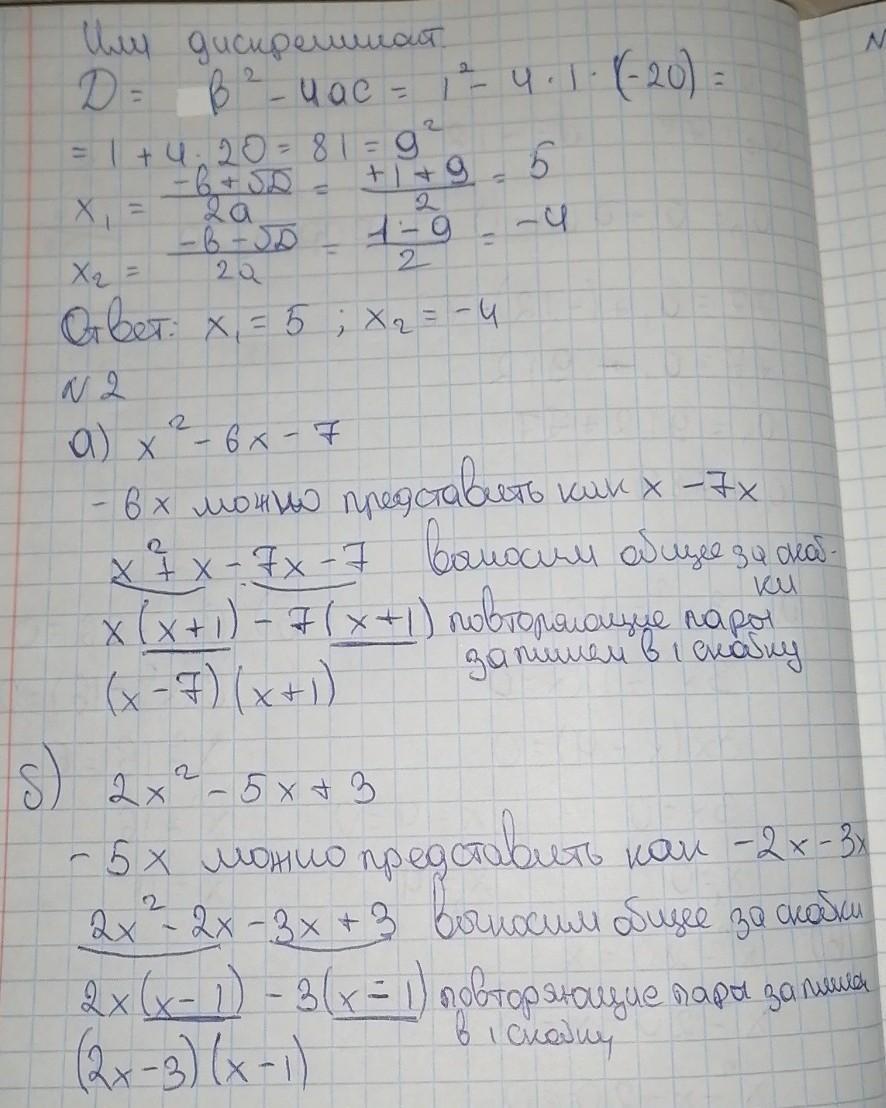 Или дискреминант
D = b² - 4ac = 1² - 4 · 1 · (-20) =
= 1 + 4 · 20 = 81 = 9²
x₁ = (-b+√D)/2a = (+1+9)/2 = 5
x₂ = (-b-√D)/2a = (1-9)/2 = -4
Ответ: x₁ = 5 ; x₂ = -4
N 2
а) x² - 6x - 7
- 6x можно представить как x - 7x
x² + x - 7x - 7 выносим общее за скоб-
ки
x(x+1) - 7(x+1) повторяющие пары
запишем в 1 скобку
(x-7)(x+1)
б) 2x² - 5x + 3
- 5x можно представить как -2x - 3x
2x² - 2x - 3x + 3 выносим общее за скобки
2x(x-1) - 3(x-1) повторяющие пары запишем
в 1 скобку
(2x-3)(x-1)
N